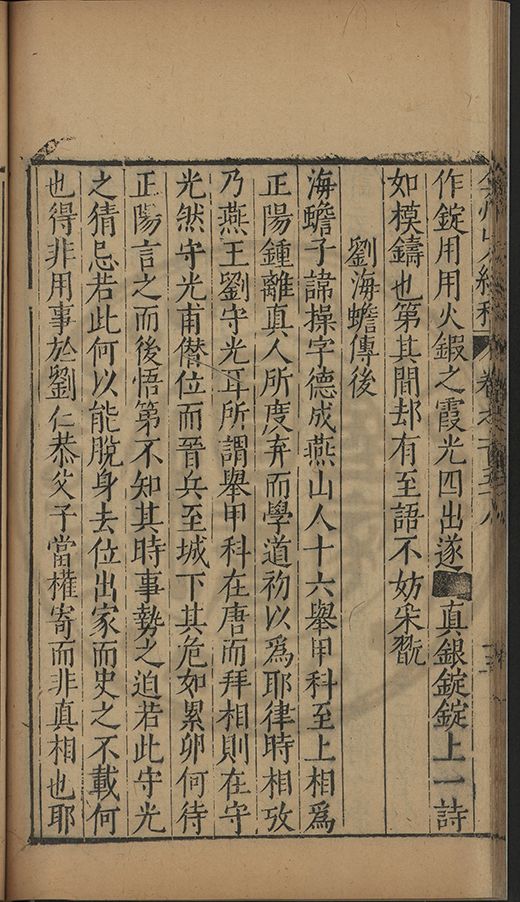 作錠用用火鍜之霞光四出遂真銀錠錠上一詩
如模鑄也第其間却有至語不妨采翫
劉海蟾傳後
海蟾子諱操字德成燕山人十六舉甲科至上相爲
正陽鍾離真人所度弃而學道初以爲耶律時相攷
乃燕王劉守光耳所謂舉甲科在唐而拜相則在守
光然守光甫僭位而晉兵至城下其危如累卵何待
正陽言之而後悟第不知其時事勢之迫若此守光
之猜忌若此何以能脫身去位出家而史之不載何
也得非用事於劉仁恭父子當權寄而非真相也耶